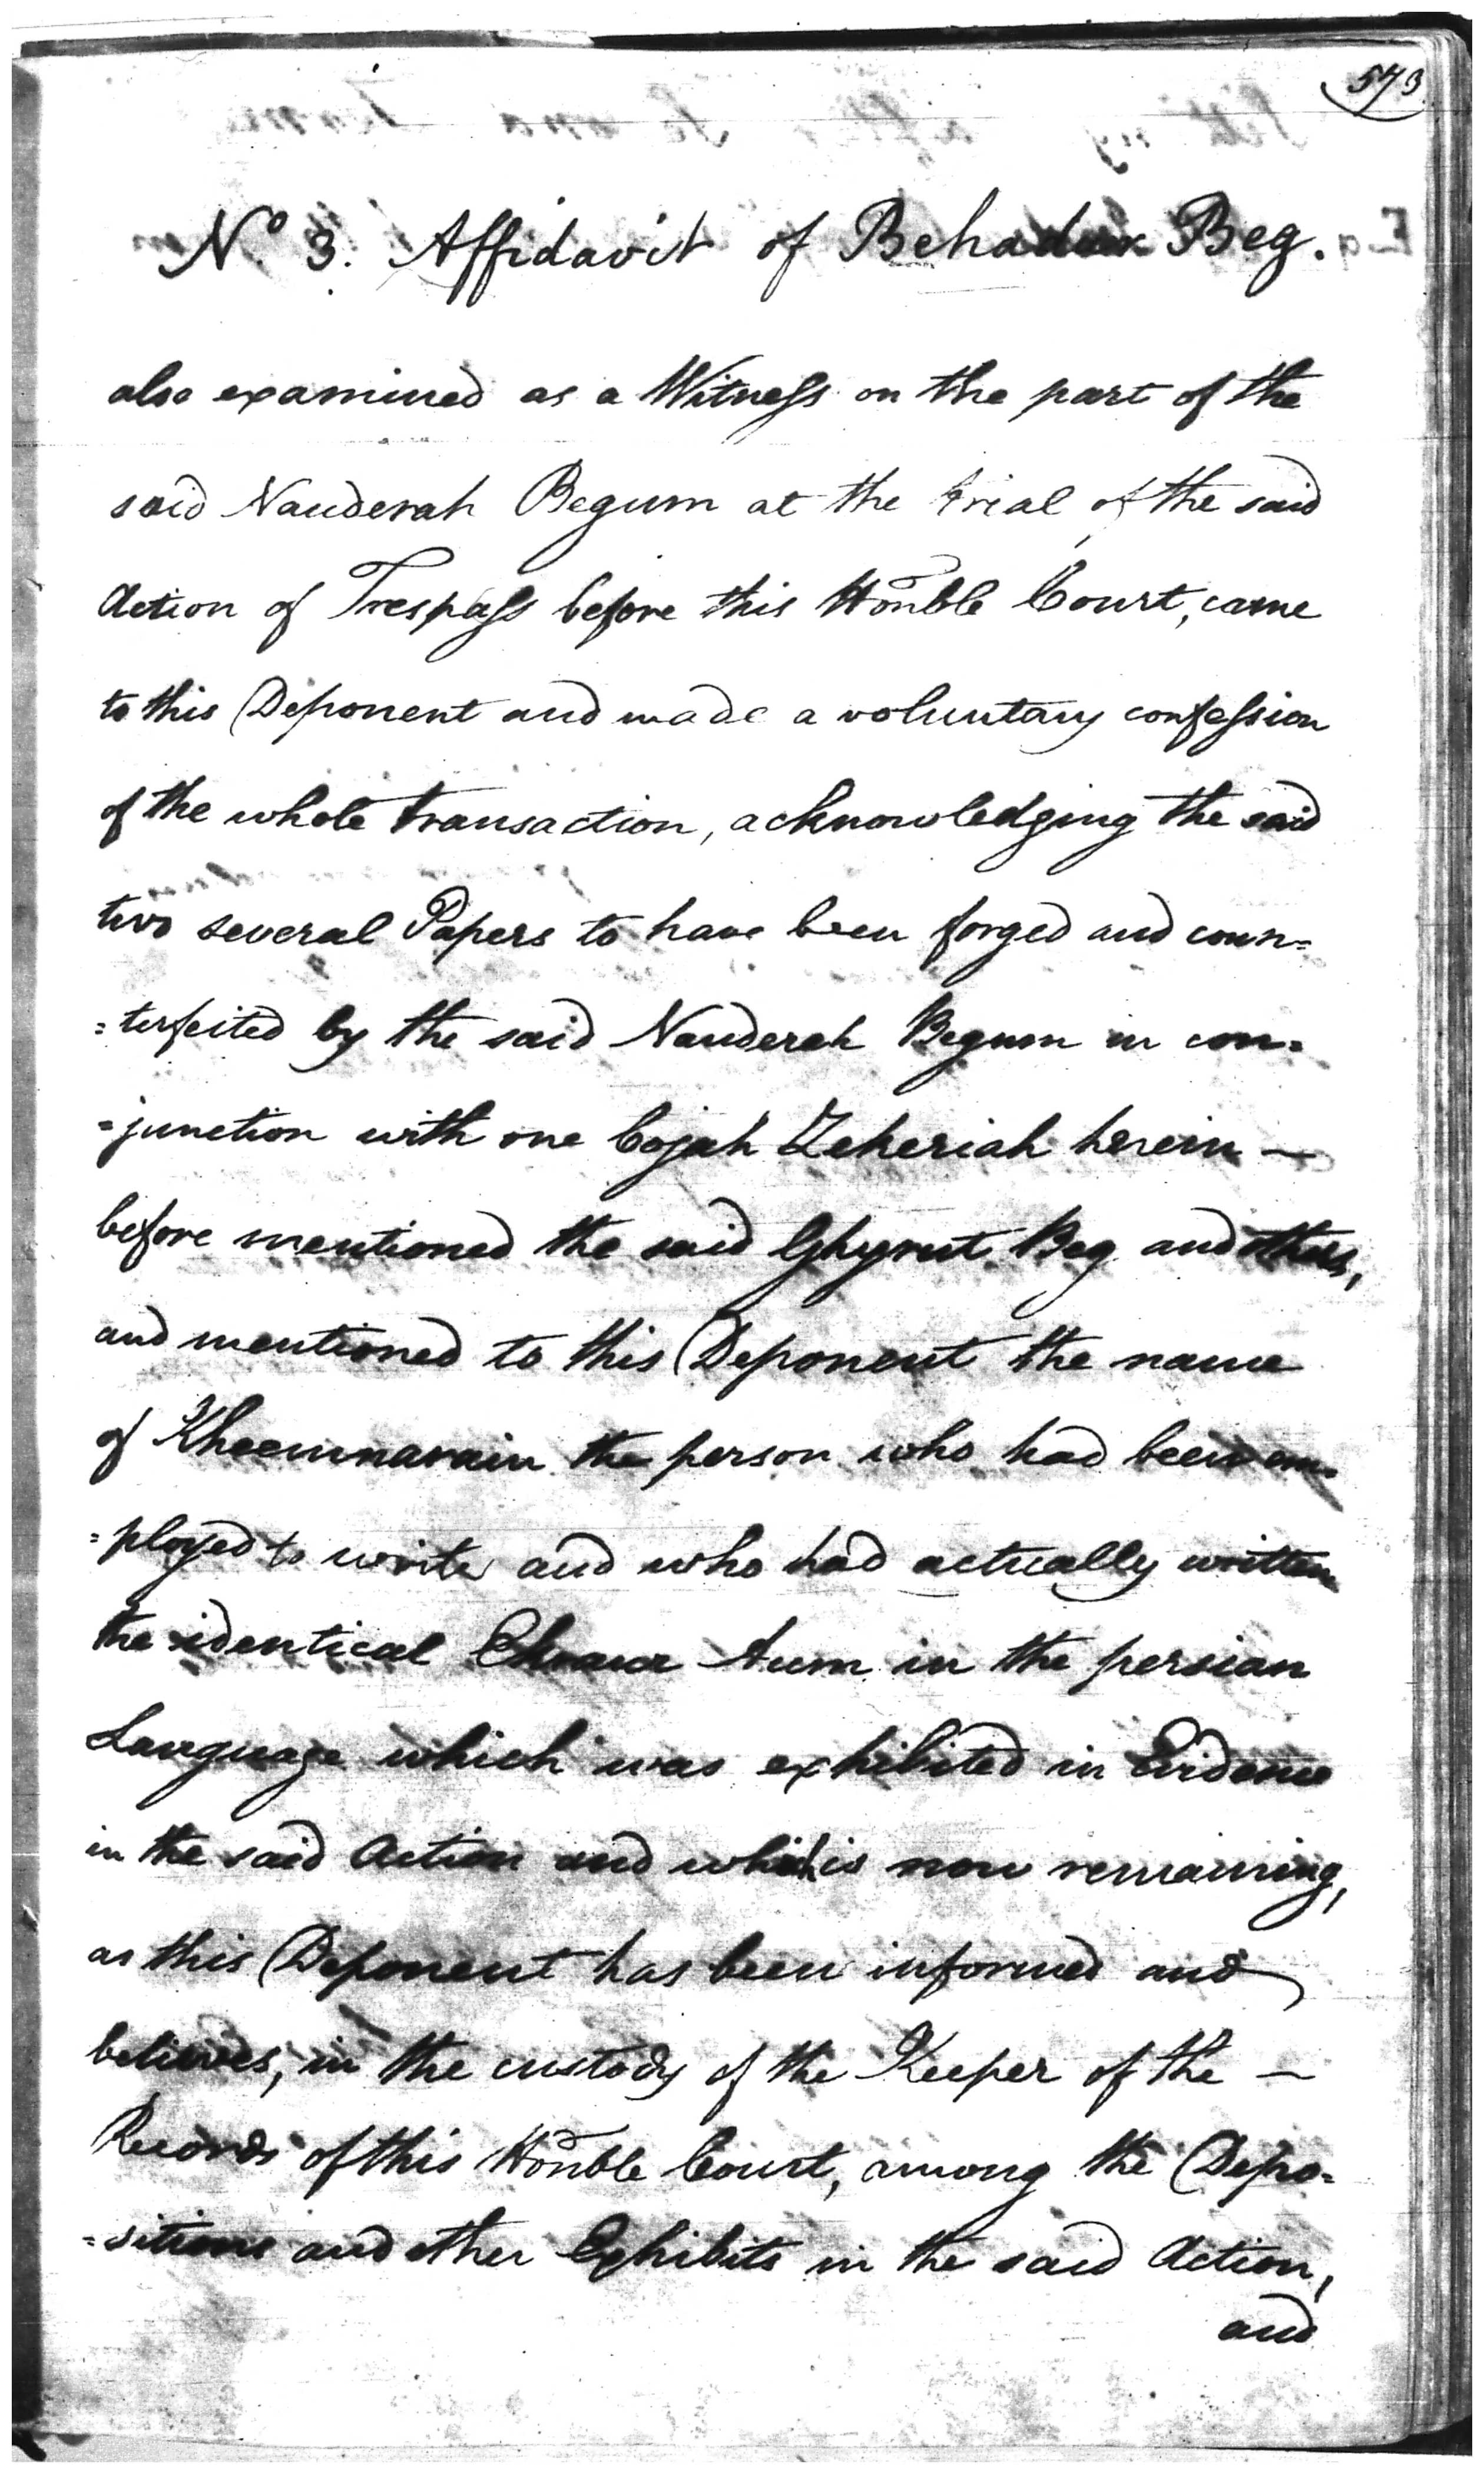 573
No. 3. Affidavit of Behadur Beg.
also examined as a Witness on the part of the
said Nauderah Begum at the trial of the said
Action of Trespass before this Honble Court, came
to this Deponent and made a voluntary confession
of the whole transaction, acknowledging the said
two several Papers to have been forged and coun=
=terfeited by the said Nauderah Begum in con=
=junction with one Cojah Zekeriah herein —
before mentioned the said Ghyrut Beg and others,
and mentioned to this Deponent the name
of Kheemnarain the person who had been em=
=ployed to write and who had actually written
the identical Aum in the persian
Language which was exhibited in Evidence
in the said Action and which is now remaining,
as this Deponent has been informed and
believes, in the custody of the Keeper of the —
Records of this Honble Court, among the Depo=
=sitions and other Exhibits in the said Action,
and